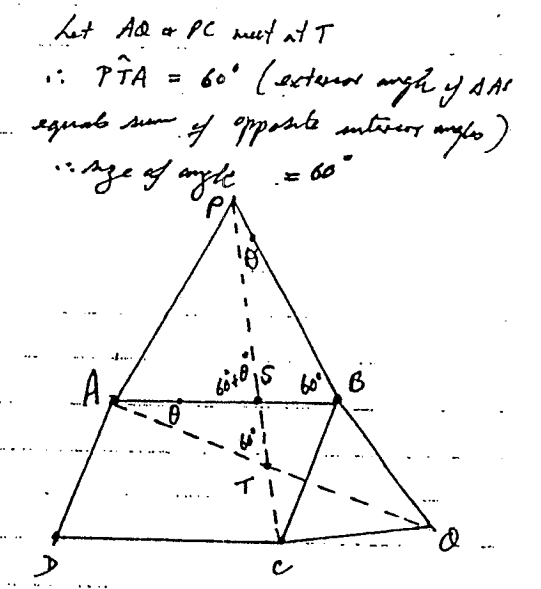 Let AQ & PC meet at T
∴ PT̂A = 60° (exterior angle of ΔAS
equals sum of opposite interior angles)
∴ size of angle = 60°
P
θ
A
60°+θ°
S
60°
B
θ
60°
T
D
C
Q